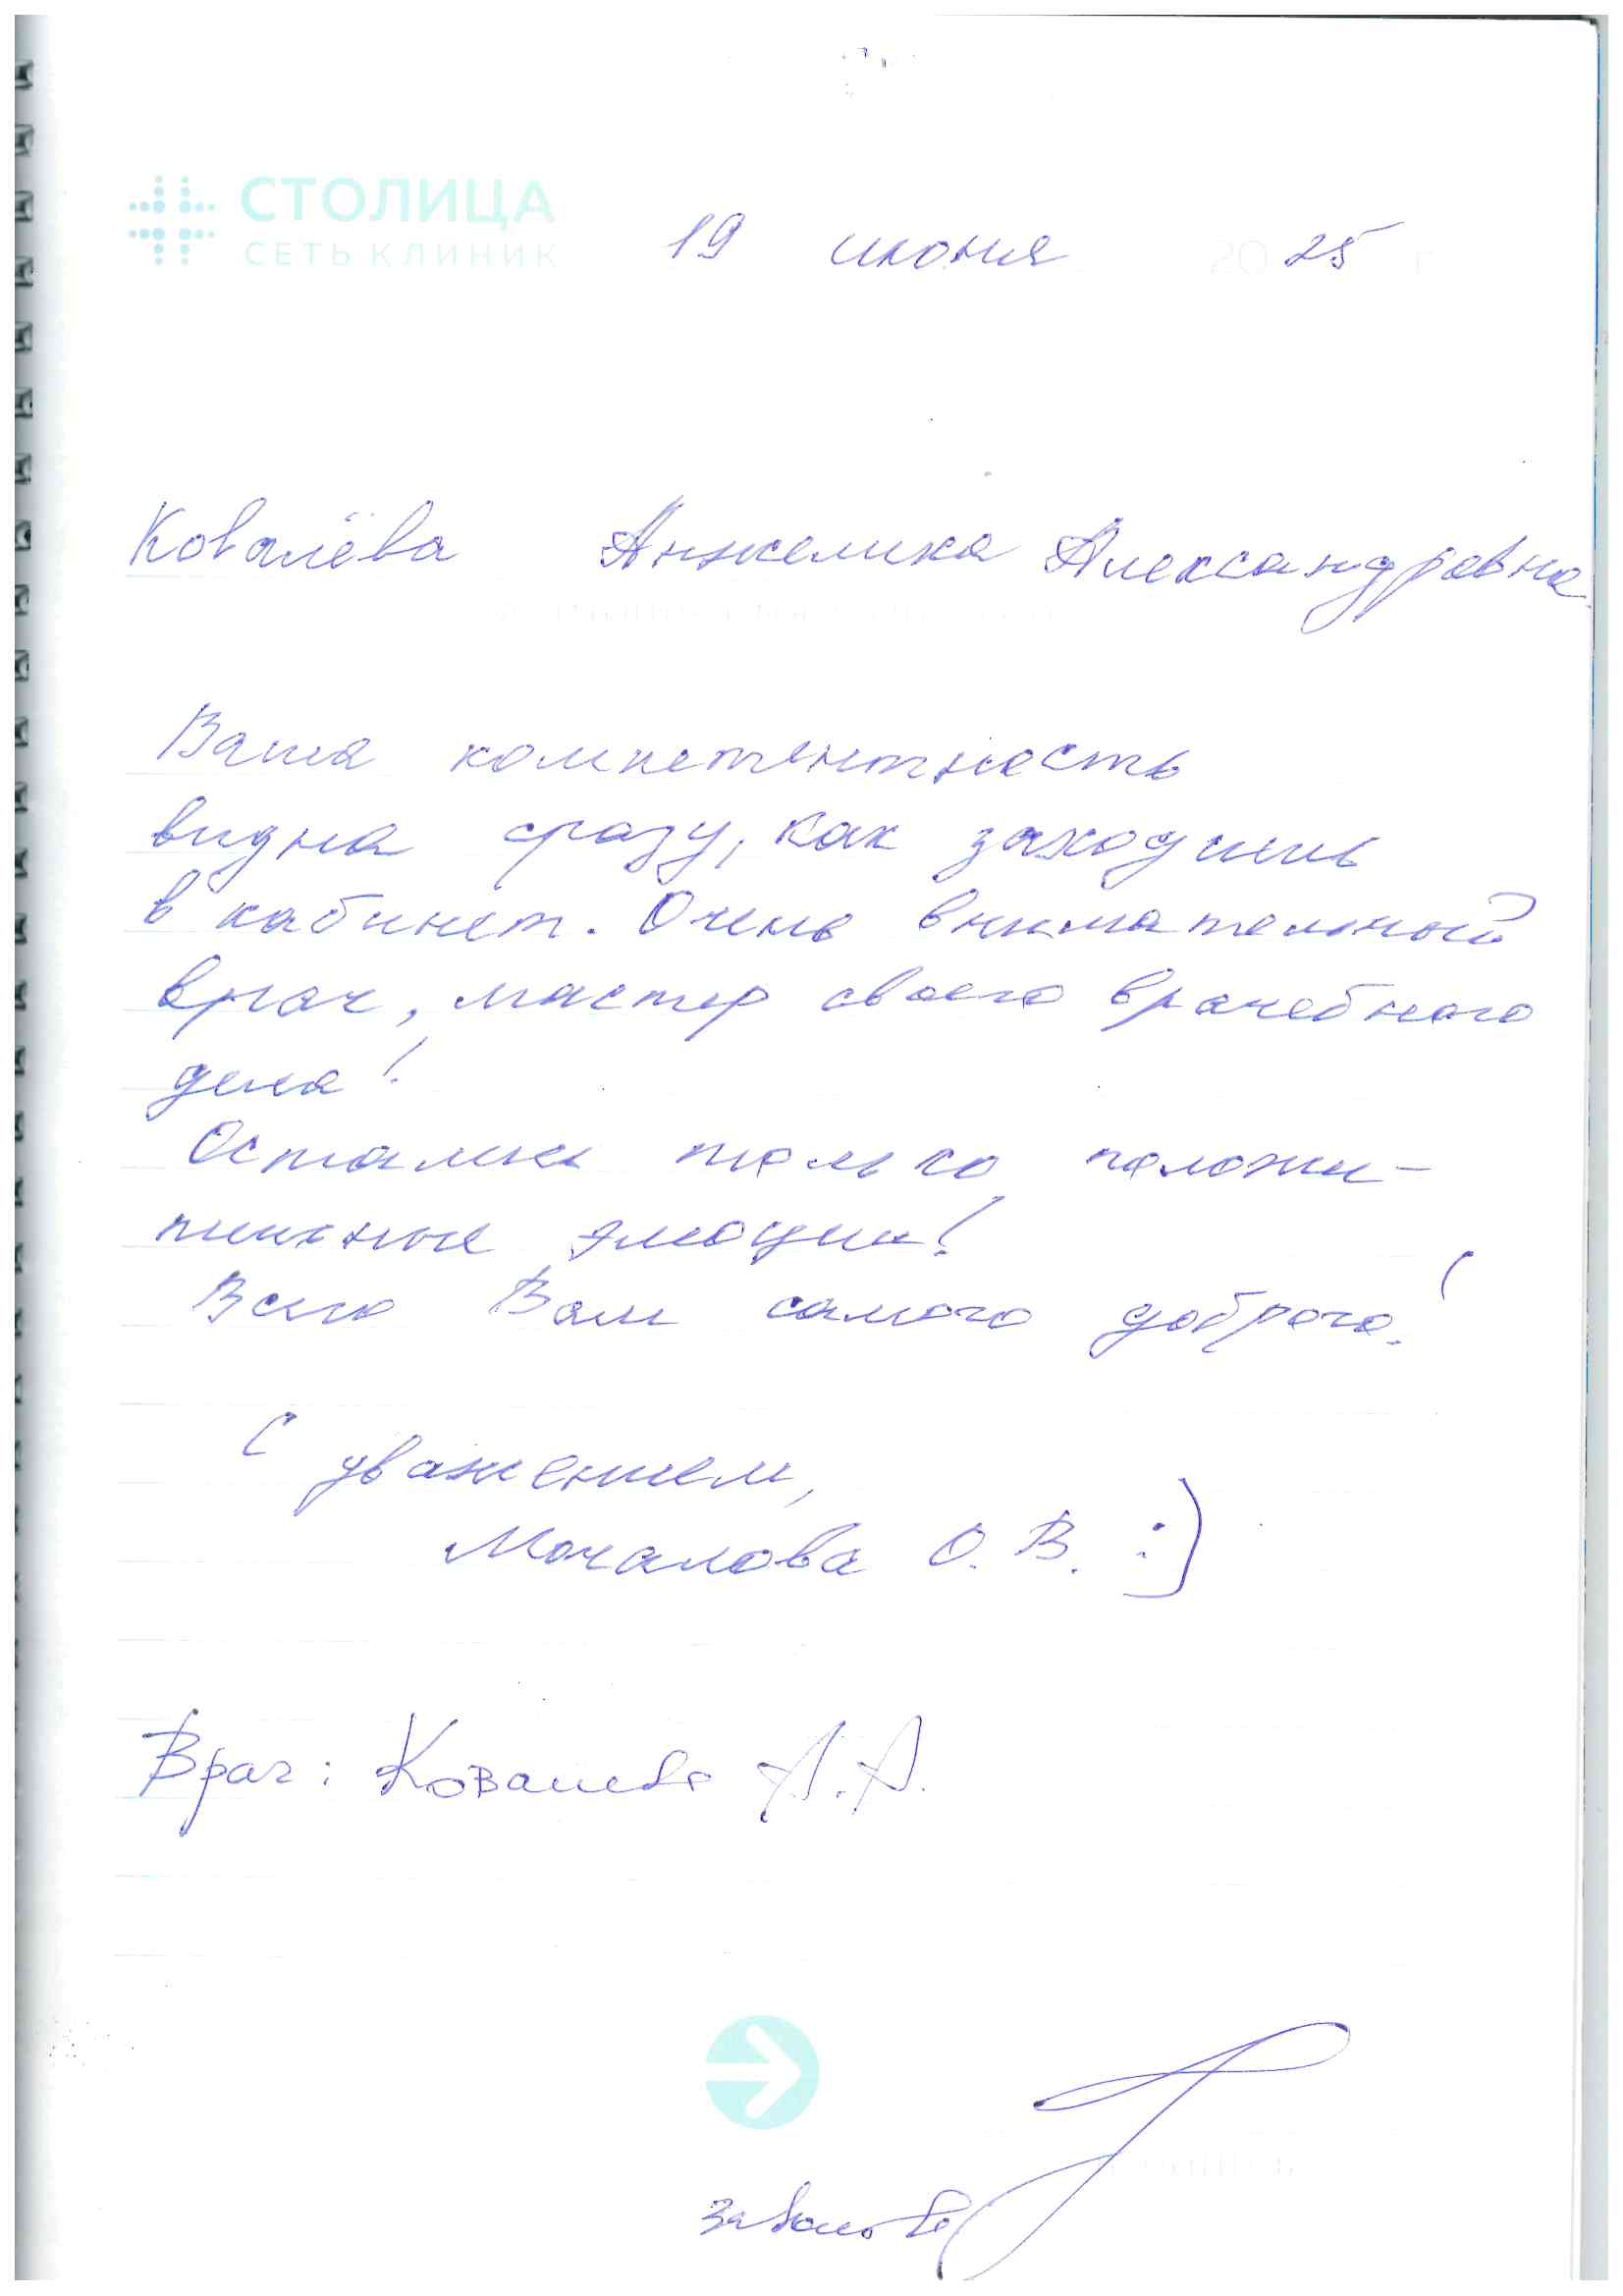 СТОЛИЦА
СЕТЬ КЛИНИК
19 июня 2025 г.
Ковалёва Анжелика Александровна
Ваша компетентность
видна сразу, как заходишь
в кабинет. Очень внимательный
врач, мастер своего врачебного
дела!
Остались только положи-
тельные эмоции!
Всего Вам самого доброго!
С уважением,
Мочалова О. В. :)
Врач: Ковалева А.А.